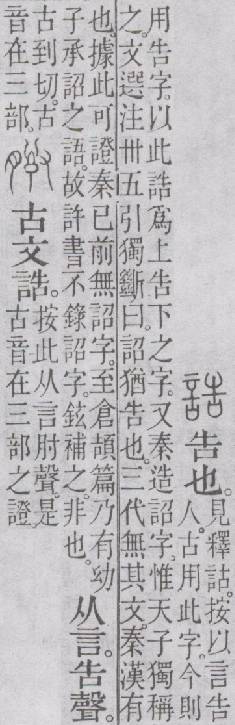 誥 告也。
見釋詁。按以言告
人。古用此字。今則
用告字。以此誥爲上告下之字。又秦造詔字。惟天子獨稱
之。文選注卅五引獨斷曰。詔猶告也。三代無其文。秦漢有
也。據此可證秦已前無詔字。至倉頡篇乃有幼
子承詔之語。故許書不錄詔字。鉉補之。非也。
从言。告聲。
古到切。古
音在三部。
古文誥。
按此从言肘聲。是
古音在三部之證